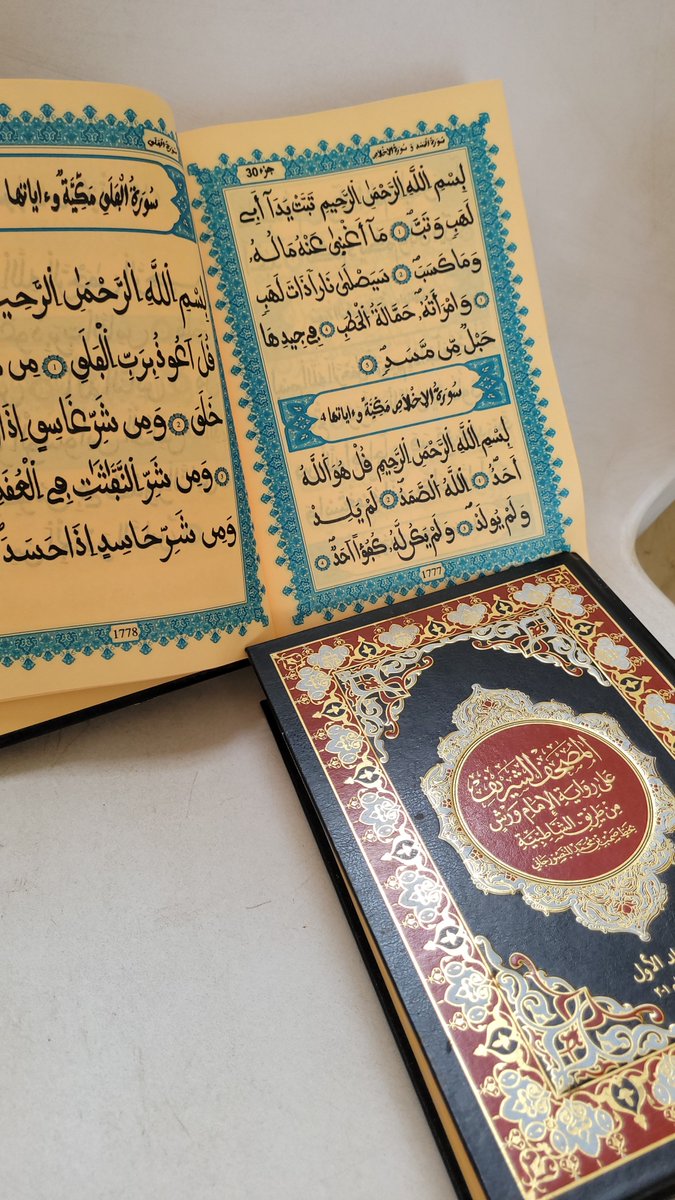 سورة المسد و سورة الاخلاص
جزء 30
بِسْمِ اِ۬للَّهِ اِ۬لرَّحْمَٰنِ اِ۬لرَّحِيمِ تَبَّتْ يَدَآ أَبِے
لَهَبٖ وَتَبَّۖ 1 مَآ أَغْنَىٰ عَنْهُ مَالُهُۥ
وَمَا كَسَبَۖ 2 سَيَصْلَىٰ نَاراٗ ذَاتَ لَهَبٖ
3 وَامْرَأَتُهُۥ حَمَّالَةُ اُ۬لْحَطَبِ 4 فِے جِيدِهَا
حَبْلٞ مِّن مَّسَدٖۖ 5
سُورَةُ الِاخْلَاصِ مَكِّيَّةٌ وءاياتها 4
بِسْمِ اِ۬للَّهِ اِ۬لرَّحْمَٰنِ اِ۬لرَّحِيمِ قُلْ هُوَ اَ۬للَّهُ
أَحَدٌۖ 1 اَ۬للَّهُ اُ۬لصَّمَدُۖ 2 لَمْ يَلِدْ
وَلَمْ يُولَدْۖ 3 وَلَمْ يَكُن لَّهُۥ كُفُؤاً اَحَدٌۖ 4
1777
سورة الفلق
سُورَةُ الْفَلَقِ مَكِّيَّةٌ وءاياتها
بِسْمِ اِ۬للَّهِ اِ۬لرَّحْمَٰنِ
قُلَ اَعُوذُ بِرَبِّ اِ۬لْفَلَقِ 1 مِن
خَلَقَ 2 وَمِن شَرِّ غَاسِقٍ اِذَا
3 وَمِن شَرِّ اِ۬لنَّفَّٰثَٰتِ فِے
وَمِن شَرِّ حَاسِدٍ اِذَا حَسَدَۖ
1778
المصحف الشريف
على رواية الإمام ورش
من طريق الشاطبية
الأول